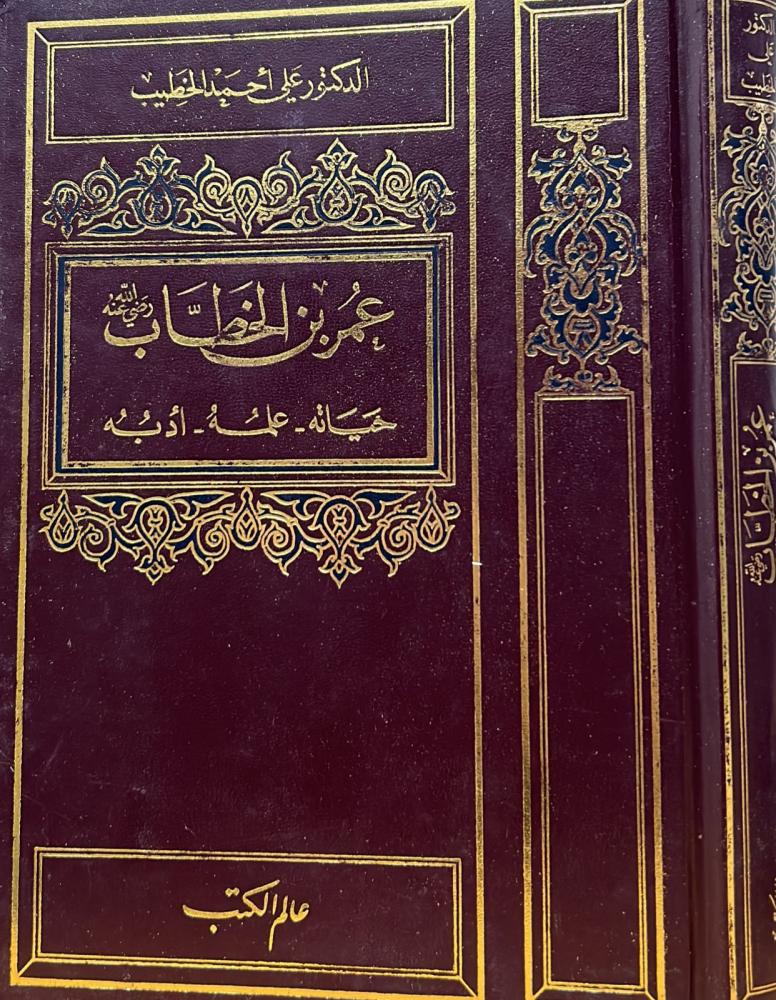 الدكتور علي أحمد الخطيب
عُمَر بن الخَطَّاب رَضِيَ اللهُ عَنْهُ
حَيَاته - علمُهُ - أدبُهُ
عالم الكتب
الدكتور
علي
الخطيب
عمر بن الخطاب رضي الله عنه